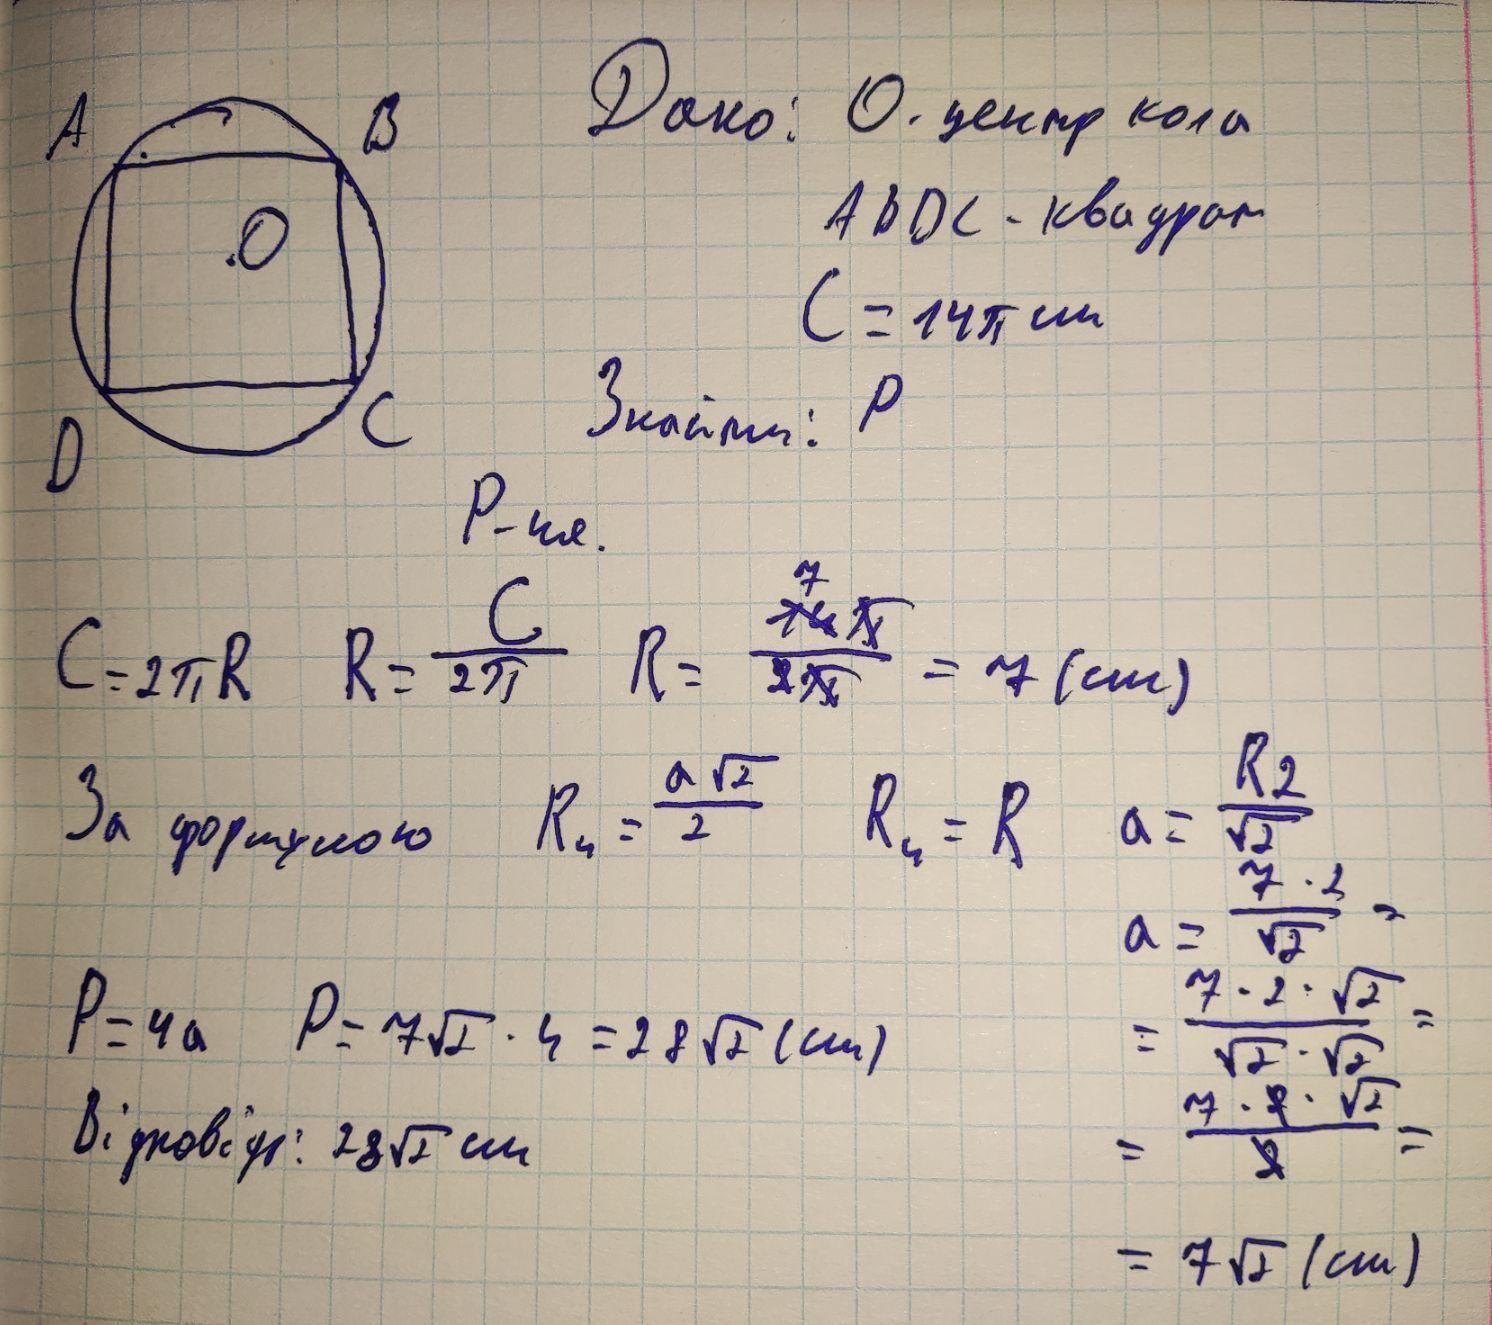 A B
O
D C
Дано: О - центр кола
ABDC - квадрат
C = 14π см
Знайти: P
Р-ня.
C = 2πR R = C/2π R = 14π/2π = 7 (см)
7
За формулою R₄ = a√2/2 R₄ = R a = R2/√2
a = 7 · 2/√2 =
= 7 · 2 · √2/√2 · √2 =
P = 4a P = 7√2 · 4 = 28√2 (см)
= 7 · 2 · √2/2 =
Відповідь: 28√2 см
= 7√2 (см)